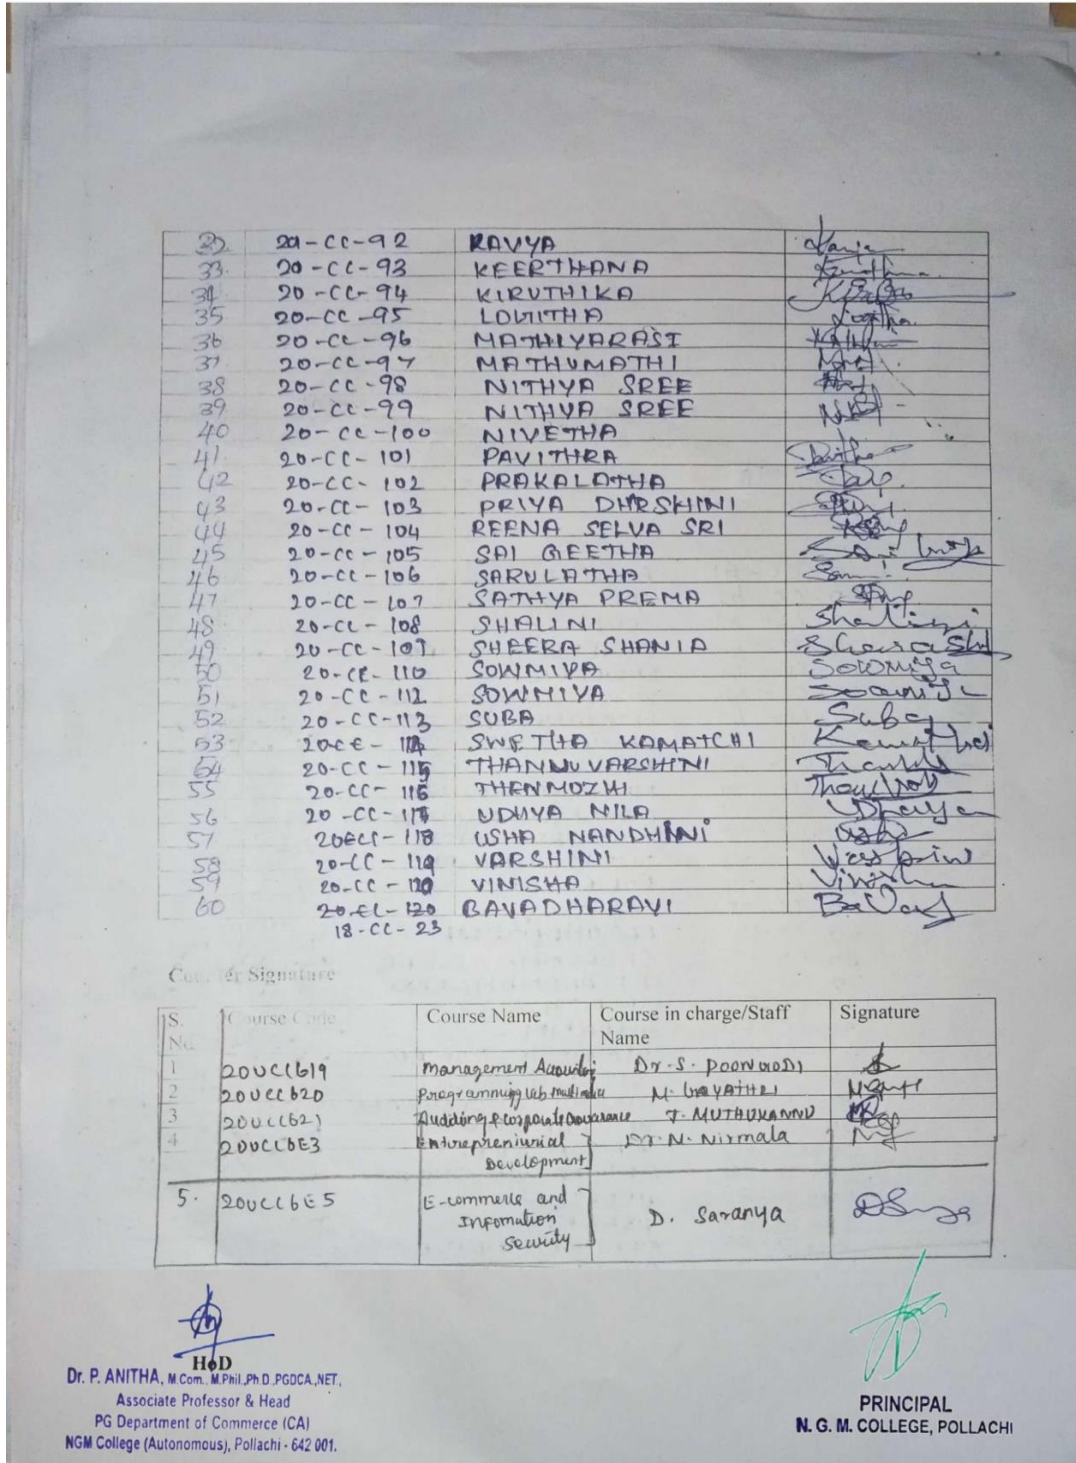 32 20-CC-92 KAVYA Kavya
33. 20-CC-93 KEERTHANA
34 20-CC-94 KIRUTHIKA
35 20-CC-95 LOGITHA Logitha.
36 20-CC-96 MATHIYARASI
37 20-CC-97 MATHUMATHI
38 20-CC-98 NITHYA SREE
39 20-CC-99 NITHYA SREE
40 20-CC-100 NIVETHA
41. 20-CC-101 PAVITHRA
42 20-CC-102 PRAKALATHA
43 20-CC-103 PRIYA DHRSHINI
44 20-CC-104 REENA SELVA SRI
45 20-CC-105 SAI GEETHA
46 20-CC-106 SARULATHA
47 20-CC-107 SATHYA PREMA
48 20-CC-108 SHALINI Shalini
49 20-CC-109 SHEERA SHANIA
50 20-CC-110 SOWMIYA Sowmiya
51 20-CC-112 SOWMIYA
52 20-CC-113 SUBA Suba
53 20CC-114 SWETHA KAMATCHI
54 20-CC-115 THANNUVARSHINI
55 20-CC-116 THENMOZHI
56 20-CC-117 UDHYA NILA
57 118 USHA NANDHINI
58 20-CC-119 VARSHINI
59 20-CC-120 VINISHA
60 BAVADHARAVI
18-CC-23
Counter Signature
S. No. Course Code Course Name Course in charge/Staff Name Signature
1 20UCC619 Management Accounting Dr.S. POONGODI
2 20UCC620 Programming Lab Multimedia M. GAYATHRI
3 20UCC621 Auditing & corporate Governance J. MUTHUKANNU
4 20UCC6E3 Entrepreniurial Dr. N. Nirmala
Development
5. 20UCC6E5 E-commerce and
Infomation D. Saranya
Security
HoD
Dr. P. ANITHA, M.Com., M.Phil.,Ph.D.,PGDCA.,NET.,
Associate Professor & Head
PG Department of Commerce (CA)
NGM College (Autonomous), Pollachi - 642 001.
PRINCIPAL
N. G. M. COLLEGE, POLLACHI